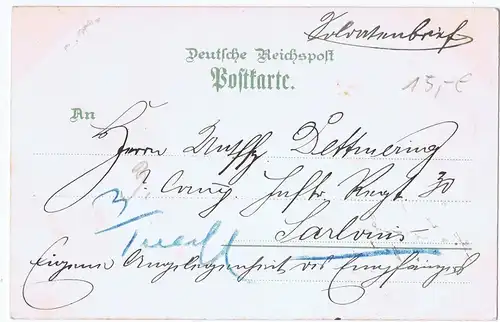 Soldatenbrief
Deutsche Reichspost
Postkarte.
15,-€
An
Herrn Dettmering
Inftr Regt 30
3
Sarlouis
Eigene Angelegenheit des Empfängers